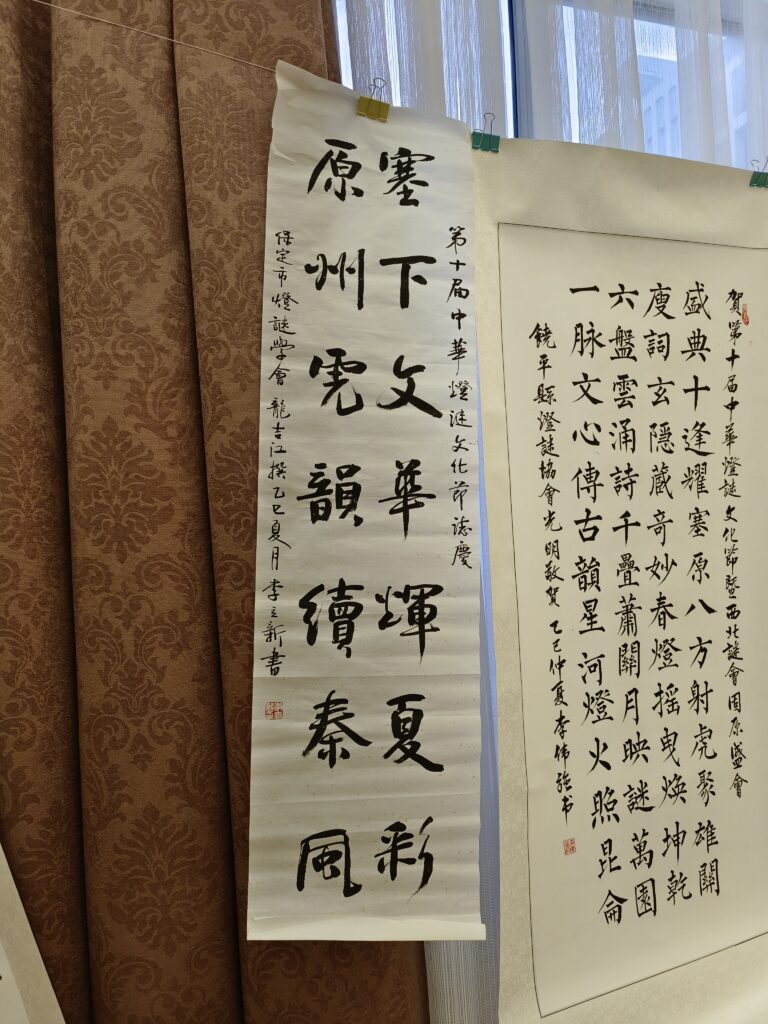 第十届中華燈谜文化節誌慶
塞下文華輝夏彩
原州虎韻續秦風
保定市燈謎学會 龍吉江撰 乙巳夏月 李立新書
賀第十届中華燈謎文化節暨西北謎會固原盛會
盛典十逢耀塞原八方射虎聚雄關
廋詞玄隱蔵奇妙春燈摇曳焕坤乾
六盤雲涌詩千疊蕭關月映謎萬園
一脉文心傳古韻星河燈火照昆侖
饒平縣燈謎協會光明敬賀 乙巳仲夏李伟强书